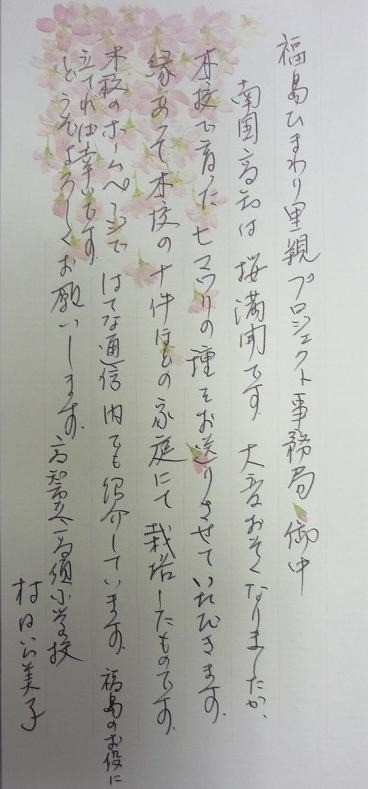 福島ひまわり里親プロジェクト事務局 御中
南国高知は桜満開です 大変おそくなりましたが、
本校で育ったヒマワリの種をお送りさせていただきます。
縁あって本校の十件ほどの家庭にて栽培したものです。
本校のホームページではてな通信内でも紹介しています。福島のお役に
立てれば幸いです。
どうぞよろしくお願いします。高知県 小学校
村 美子